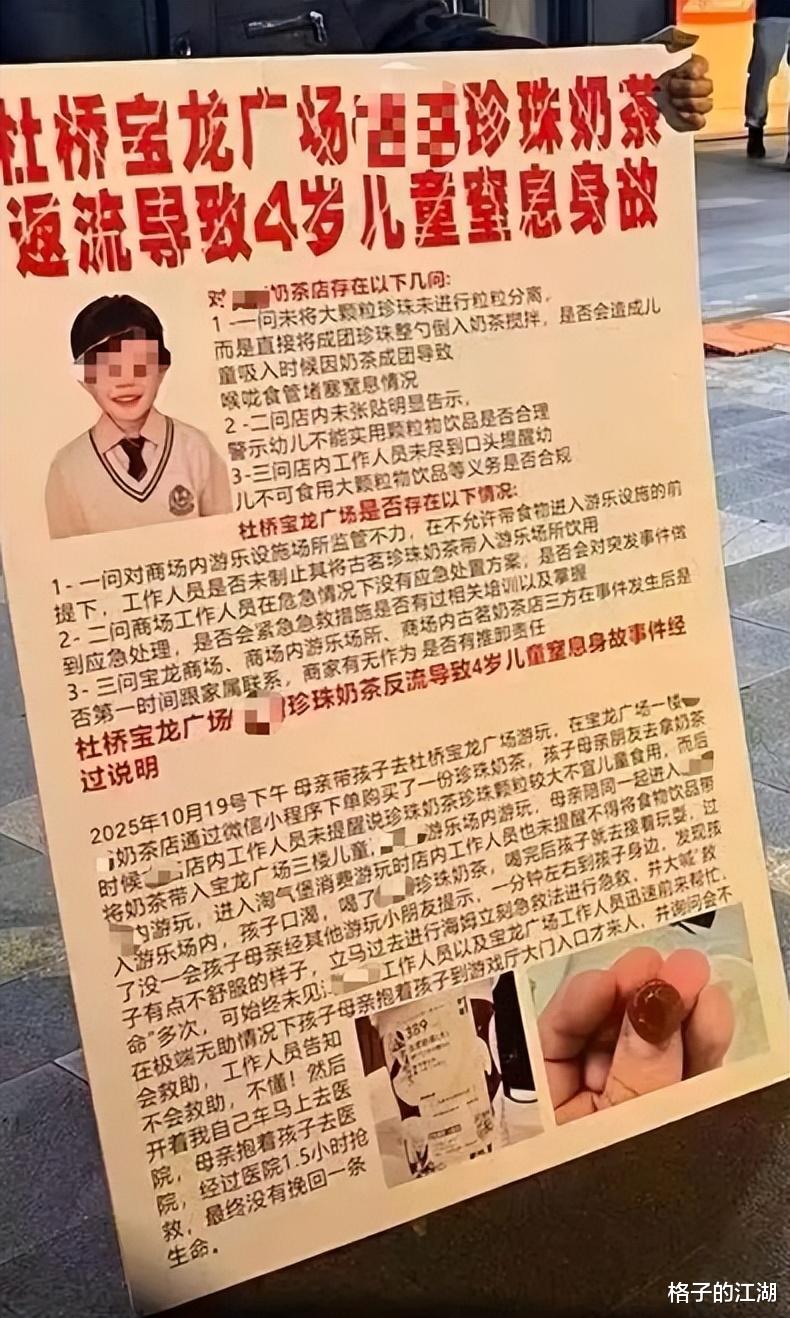 杜桥宝龙广场 珍珠奶茶
返流导致4岁儿童窒息身故
对 奶茶店存在以下几问:
1-一问未将大颗粒珍珠未进行粒粒分离,
而是直接将成团珍珠整勺倒入奶茶搅拌,是否会造成儿
童吸入时候因奶茶成团导致
喉咙食管堵塞窒息情况
2-二问店内未张贴明显告示,
警示幼儿不能实用颗粒物饮品是否合理
3-三问店内工作人员未尽到口头提醒幼
儿不可食用大颗粒物饮品等义务是否合规
杜桥宝龙广场是否存在以下情况:
1-一问对商场内游乐设施场所监管不力,在不允许带食物进入游乐设施的前
提下,工作人员是否未制止其将古茗珍珠奶茶带入游乐场所饮用
2-二问商场工作人员在危急情况下没有应急处置方案,是否会对突发事件做
到应急处理,是否会紧急急救措施是否有过相关培训以及掌握
3-三问宝龙商场、商场内游乐场所、商场内古茗奶茶店三方在事件发生后是
否第一时间跟家属联系,商家有无作为 是否有推卸责任
杜桥宝龙广场 珍珠奶茶反流导致4岁儿童窒息身故事件经
过说明
2025年10月19号下午 母亲带孩子去杜桥宝龙广场游玩,在宝龙广场一楼
奶茶店通过微信小程序下单购买了一份珍珠奶茶,孩子母亲朋友去拿奶茶
时候 店内工作人员未提醒说珍珠奶茶珍珠颗粒较大不宜儿童食用,而后
将奶茶带入宝龙广场三楼儿童, 游乐场内游玩,母亲陪同一起进入
内游玩,进入淘气堡消费游玩时店内工作人员也未提醒不得将食物饮品带
入游乐场内,孩子口渴,喝了 珍珠奶茶,喝完后孩子就去接着玩耍,过
了没一会孩子母亲经其他游玩小朋友提示,一分钟左右到孩子身边,发现孩
子有点不舒服的样子,立马过去进行海姆立刻急救法进行急救,并大喊"救
命"多次,可始终未见 工作人员以及宝龙广场工作人员迅速前来帮忙,
在极端无助情况下孩子母亲抱着孩子到游戏厅大门入口才来人,并询问会不
会救助,工作人员告知
不会救助,不懂!然后
开着我自己车马上去医
院,母亲抱着孩子去医
院,经过医院1.5小时抢
救,最终没有挽回一条
生命。
389
格子的江湖